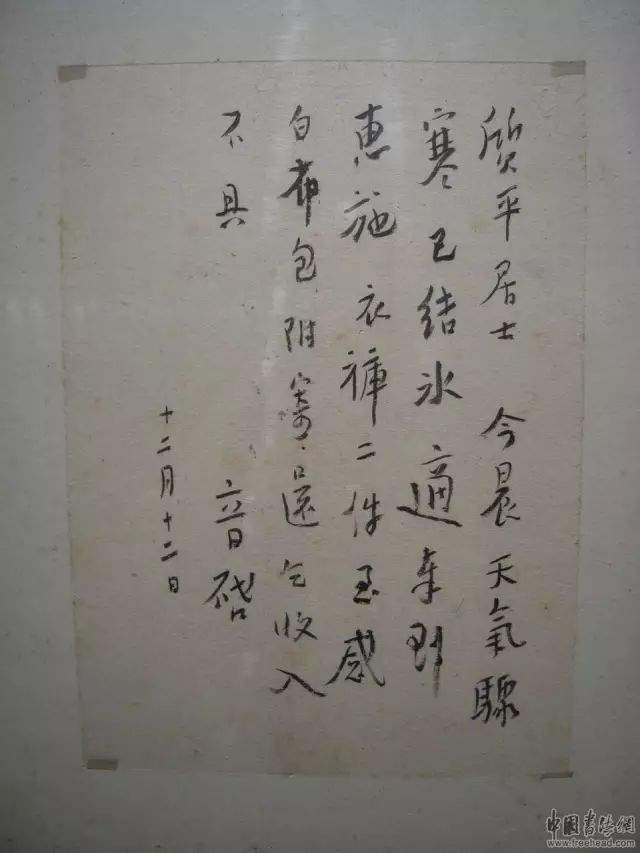 質平居士 今晨天氣驟
寒已结氷適奉到
惠施衣褲二件至感
白布包附寄還乞收入
不具
音启
十二月十二日
中國書法網
www.freehead.com